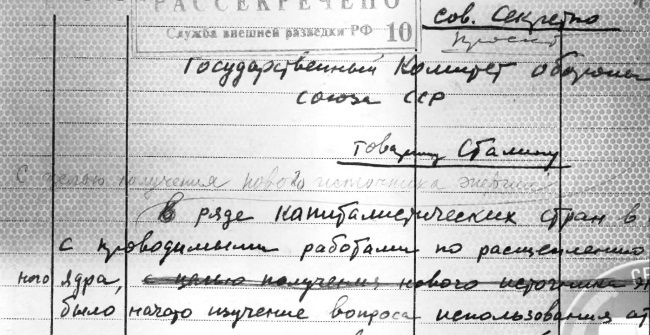 РАССЕКРЕЧЕНО
Служба внешней разведки РФ 10
Сов. Секретно
Проект
Государственный Комитет Обороны
Союза ССР
Товарищу Сталину
С целью получения нового источника энергии
В ряде капиталистических стран в
с проводимыми работами по расщеплению
ного ядра, с целью получения нового источника эн
было начато изучение вопроса использования ат